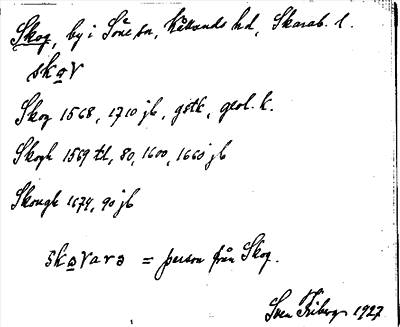 Skog, by i Söne sn, Kållands hd, Skarab. l.
skaɤ
Skog 1568, 1710 jb, gstk, geol. k.
Skogh 1569 tl, 80, 1600, 1660 jb
Skough 1674, 90 jb
skaɤarə = person från Skog.
Sven Friberg 1927